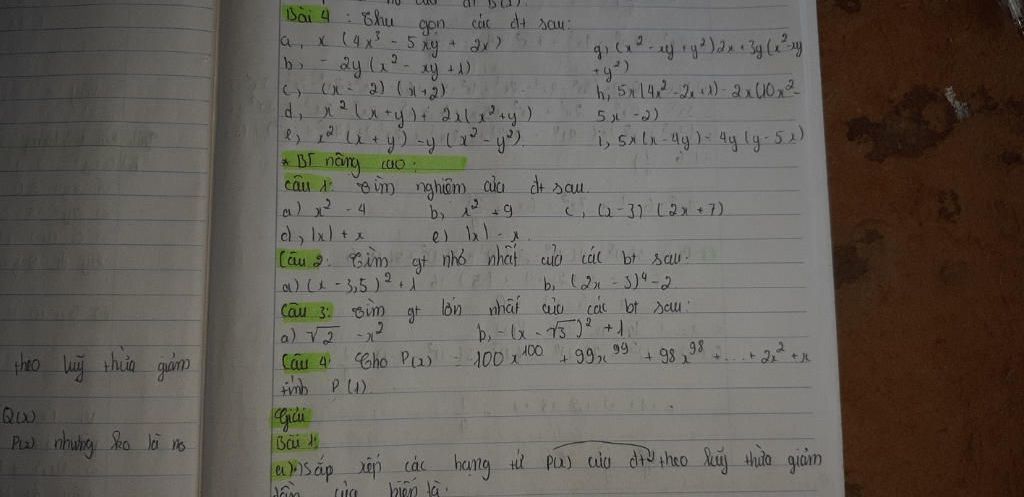 Bài 4 : Thu gọn các đt sau:
a, x (4x³ - 5xy + 2x)
b, - 2y (x² - xy + 1)
c, (x - 2) (x + 2)
d, x² (x + y) + 2x (x² + y)
e, x² (x + y) - y (x² - y²)
g, (x² - xy + y²) 2x + 3y (x² - xy
+ y²)
h, 5x (4x² - 2x + 1) - 2x (10x² -
5x - 2)
i, 5x (x - 4y) - 4y (y - 5x)
* BT nâng cao:
Câu 1: Tìm nghiệm của đt sau.
a) x² - 4 b, x² + 9 c, (x - 3) (2x + 7)
d, |x| + x e) |x| - x
Câu 2: Tìm gt nhỏ nhất của các bt sau:
a) (x - 3,5)² + 1 b, (2x - 3)⁴ - 2
Câu 3: Tìm gt lớn nhất của các bt sau:
a) √2 - x² b, - (x - √3)² + 1
Câu 4: Cho P(x) = 100x¹⁰⁰ + 99x⁹⁹ + 98x⁹⁸ + ... + 2x² + x
tính P(1).
Giải
Bài 1:
a) Sắp xếp các hạng tử P(x) của đt theo luỹ thừa giảm
dần của biến là:
theo luỹ thừa giảm
Q(x)
P(x) nhưng ko là no